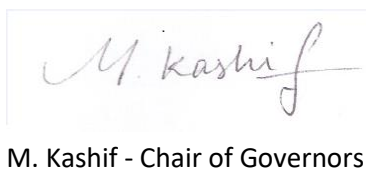 M. Kashif
M. Kashif - Chair of Governors